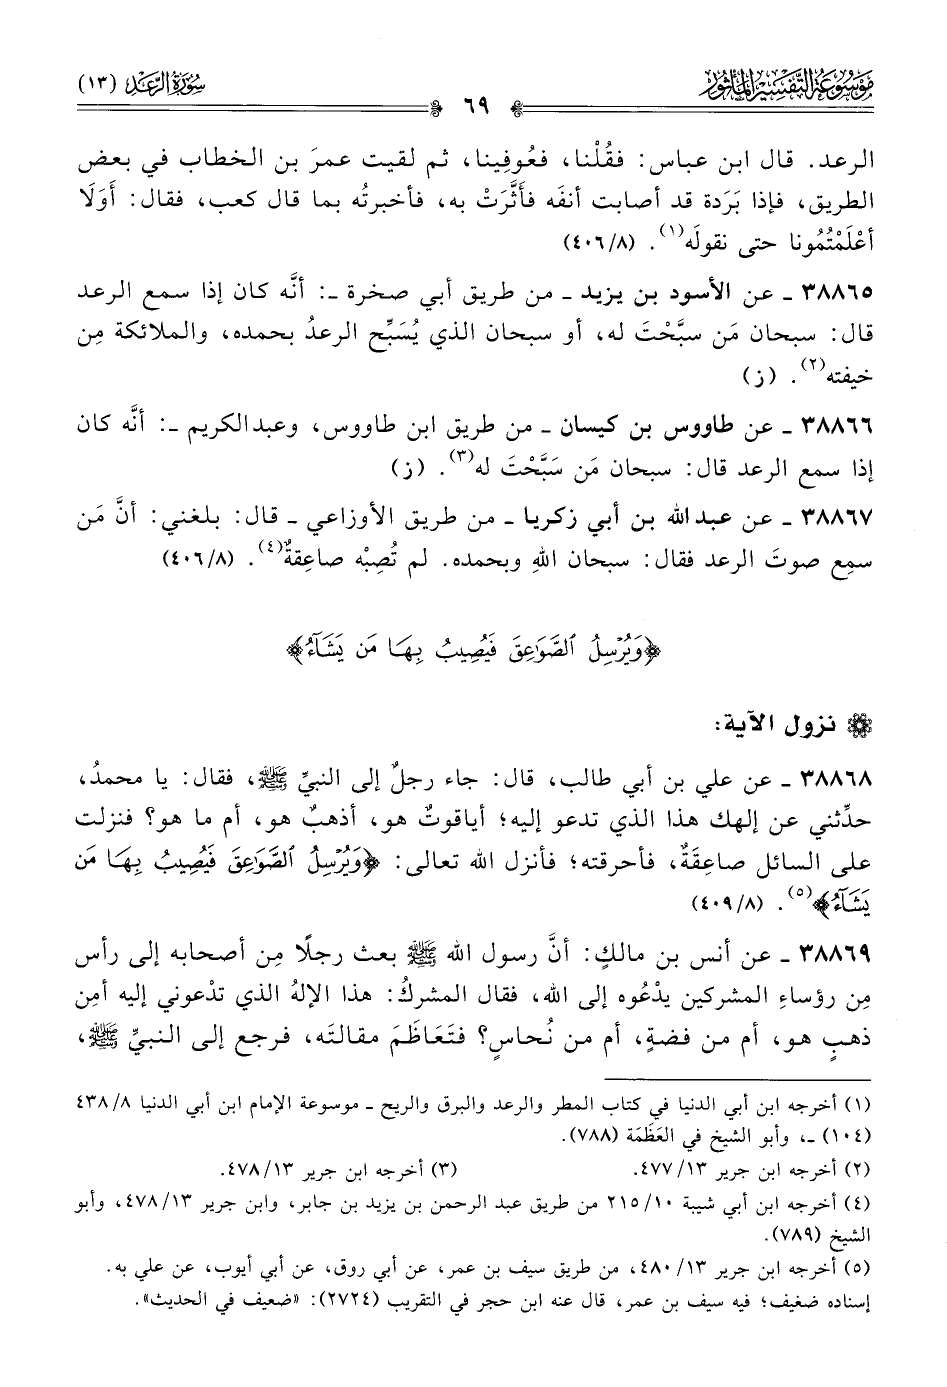 مَوْسُوعَة التَّفْسِير المَأْثُور
سُورَةُ الرَّعْدِ (١٣)
٦٩
الرعد. قال ابن عباس: فقُلْنا، فعُوفِينا، ثم لقيت عمرَ بن الخطاب في بعض
الطريق، فإذا بَرَدة قد أصابت أنفَه فأَثَّرَتْ به، فأخبرتُه بما قال كعب، فقال: أَوَلَا
أعْلَمْتُمُونا حتى نقولَه(١). (٤٠٦/٨)
٣٨٨٦٥ ـ عن الأسود بن يزيد ـ من طريق أبي صخرة ـ: أنَّه كان إذا سمع الرعد
قال: سبحان مَن سبَّحْتَ له، أو سبحان الذي يُسَبِّح الرعدُ بحمده، والملائكة مِن
خيفته(٢). (ز)
٣٨٨٦٦ ـ عن طاووس بن كيسان ـ من طريق ابن طاووس، وعبدالكريم ـ: أنَّه كان
إذا سمع الرعد قال: سبحان مَن سَبَّحْتَ له(٣). (ز)
٣٨٨٦٧ ـ عن عبدالله بن أبي زكريا ـ من طريق الأوزاعي ـ قال: بلغني: أنَّ مَن
سمِع صوتَ الرعد فقال: سبحان اللهِ وبحمده. لم تُصِبْه صاعِقةٌ(٤). (٤٠٦/٨)
﴿وَيُرْسِلُ ٱلصَّوَٰعِقَ فَيُصِيبُ بِهَا مَن يَشَآءُ﴾
نزول الآية:
٣٨٨٦٨ ـ عن علي بن أبي طالب، قال: جاء رجلٌ إلى النبيِّ ﷺ، فقال: يا محمدُ،
حدِّثني عن إلهك هذا الذي تدعو إليه؛ أياقوتٌ هو، أذهبٌ هو، أم ما هو؟ فنزلت
على السائل صاعِقَةٌ، فأحرقته؛ فأنزل الله تعالى: ﴿وَيُرْسِلُ ٱلصَّوَٰعِقَ فَيُصِيبُ بِهَا مَن
يَشَآءُ﴾(٥). (٤٠٩/٨)
٣٨٨٦٩ ـ عن أنس بن مالكٍ: أنَّ رسول الله ﷺ بعث رجلًا مِن أصحابه إلى رأس
مِن رؤساءِ المشركين يدْعُوه إلى الله، فقال المشركُ: هذا الإلهُ الذي تدْعوني إليه أمِن
ذهبٍ هو، أم من فضةٍ، أم من نُحاسٍ؟ فتَعَاظَمَ مقالتَه، فرجع إلى النبيِّ ﷺ،
(١) أخرجه ابن أبي الدنيا في كتاب المطر والرعد والبرق والريح ـ موسوعة الإمام ابن أبي الدنيا ٤٣٨/٨
(١٠٤) ـ، وأبو الشيخ في العَظَمَة (٧٨٨).
(٢) أخرجه ابن جرير ٤٧٧/١٣. (٣) أخرجه ابن جرير ٤٧٨/١٣.
(٤) أخرجه ابن أبي شيبة ٢١٥/١٠ من طريق عبد الرحمن بن يزيد بن جابر، وابن جرير ٤٧٨/١٣، وأبو
الشيخ (٧٨٩).
(٥) أخرجه ابن جرير ٤٨٠/١٣، من طريق سيف بن عمر، عن أبي روق، عن أبي أيوب، عن علي به.
إسناده ضعيف؛ فيه سيف بن عمر، قال عنه ابن حجر في التقريب (٢٧٢٤): «ضعيف في الحديث».